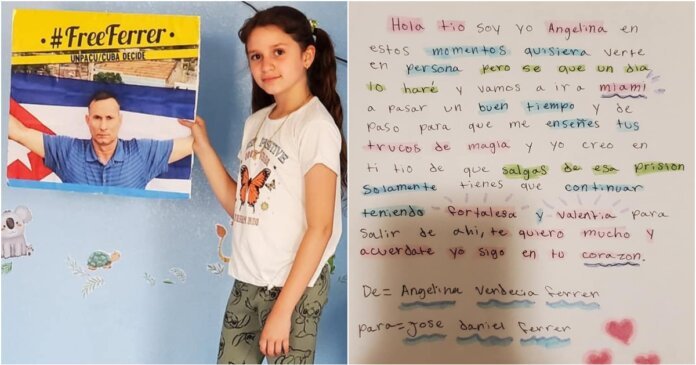 #FreeFerrer
UNPACU/CUBA DECIDE
POSITIVE
Hola tio soy yo Angelina en
estos momentos quisiera verte
en persona pero se que un dia
lo haré y vamos a ir a miami
a pasar un buen tiempo y de
paso para que me enseñes tus
trucos de magia y yo creo en
ti tio de que salgas de esa prisión
Solamente tienes que continuar
teniendo fortalesa y valentia para
Salir de ahi, te quiero mucho y
acuerdate yo sigo en tu corazon.
De= Angelina Verdecia Ferrer
para= Jose daniel ferrer